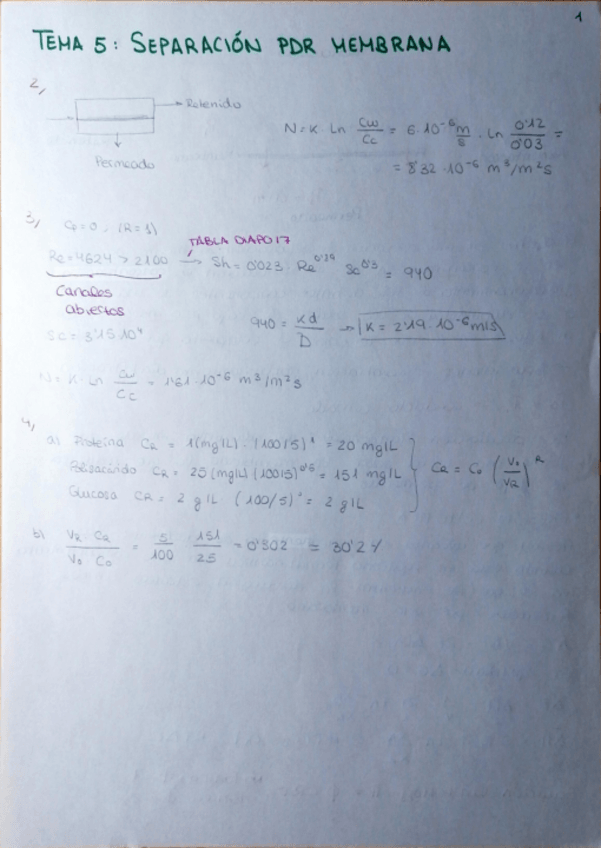 1
TEMA 5: SEPARACIÓN POR MEMBRANA
2,
Retenido
Permeado
N = K · Ln Cw/Cc = 6·10⁻⁶ m/s · Ln 0'12/0'03 =
= 8'32·10⁻⁶ m³/m²s
3, Cp=0, (R=1)
TABLA DIAPO 17
Re=4624 > 2100 → Sh = 0'023 · Re Sc = 940
Canales
abiertos
Sc = 3'15·10⁴
940 = Kd/D → K = 2'19·10⁻⁶ m/s
N = K · Ln Cw/Cc = 1'61·10⁻⁶ m³/m²s
4,
a) Proteína CR = 1(mg/L) · (100/5)¹ = 20 mg/L
Polisacárido CR = 25 (mg/L) (100/5) = 151 mg/L
Glucosa CR = 2 g/L (100/5)° = 2 g/L
CR = C₀ (V₀/VR)ᴿ
b) VR CR / V₀ C₀ = 5/100 151/25 = 0'302 = 30'2%